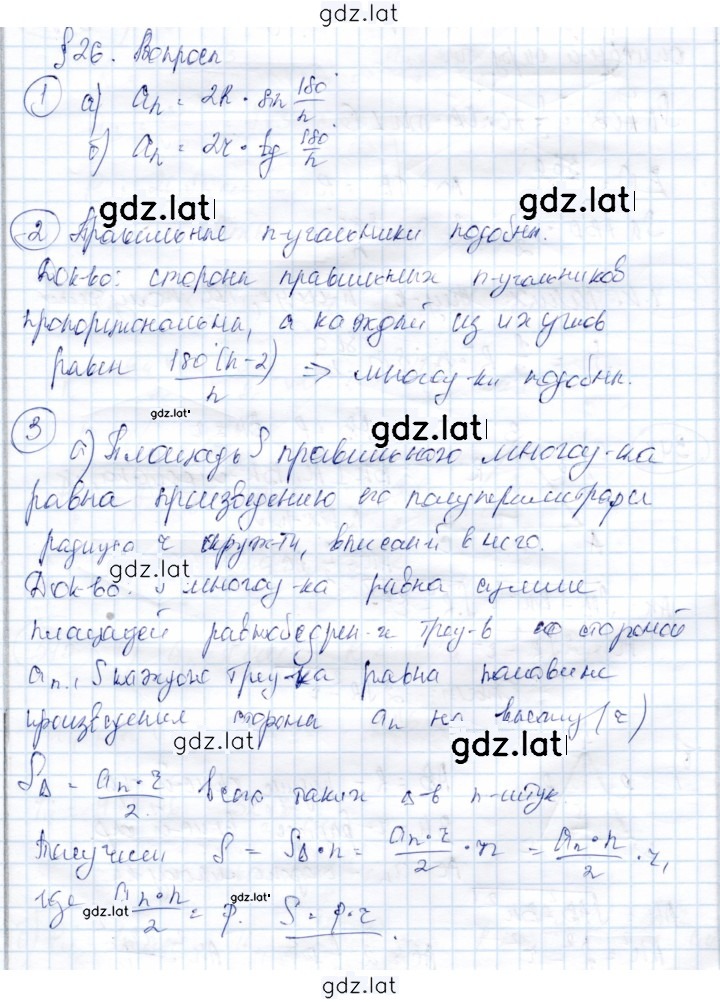 gdz.lat
§ 26. Вопросы
1 а) aₙ = 2R · sin 180°/n
б) aₙ = 2r · tg 180°/n
gdz.lat gdz.lat
2 Правильные n-угольники подобны.
Док-во: стороны правильных n-угольников
пропорциональны, а каждый из их углов
равен 180°(n-2)/n => многоу-ки подобны.
gdz.lat
gdz.lat
3
а) Площадь S правильного многоу-ка
равна произведению его полупериметра на
радиус r окруж-ти, вписаной в него.
gdz.lat
Док-во: S многоу-ка равна сумме
площадей равнобедрен-х треу-в со стороной
aₙ., S каждого треу-ка равна половине
произведения стороны aₙ на высоту (r)
gdz.lat gdz.lat
S△ = aₙ · r/2 всего таких △-в n-штук
Получаем S = S△ · n = aₙ · r/2 · n = aₙ · n/2 · r,
где aₙ · n/2 = p. S = p · r.
gdz.lat gdz.lat
gdz.lat